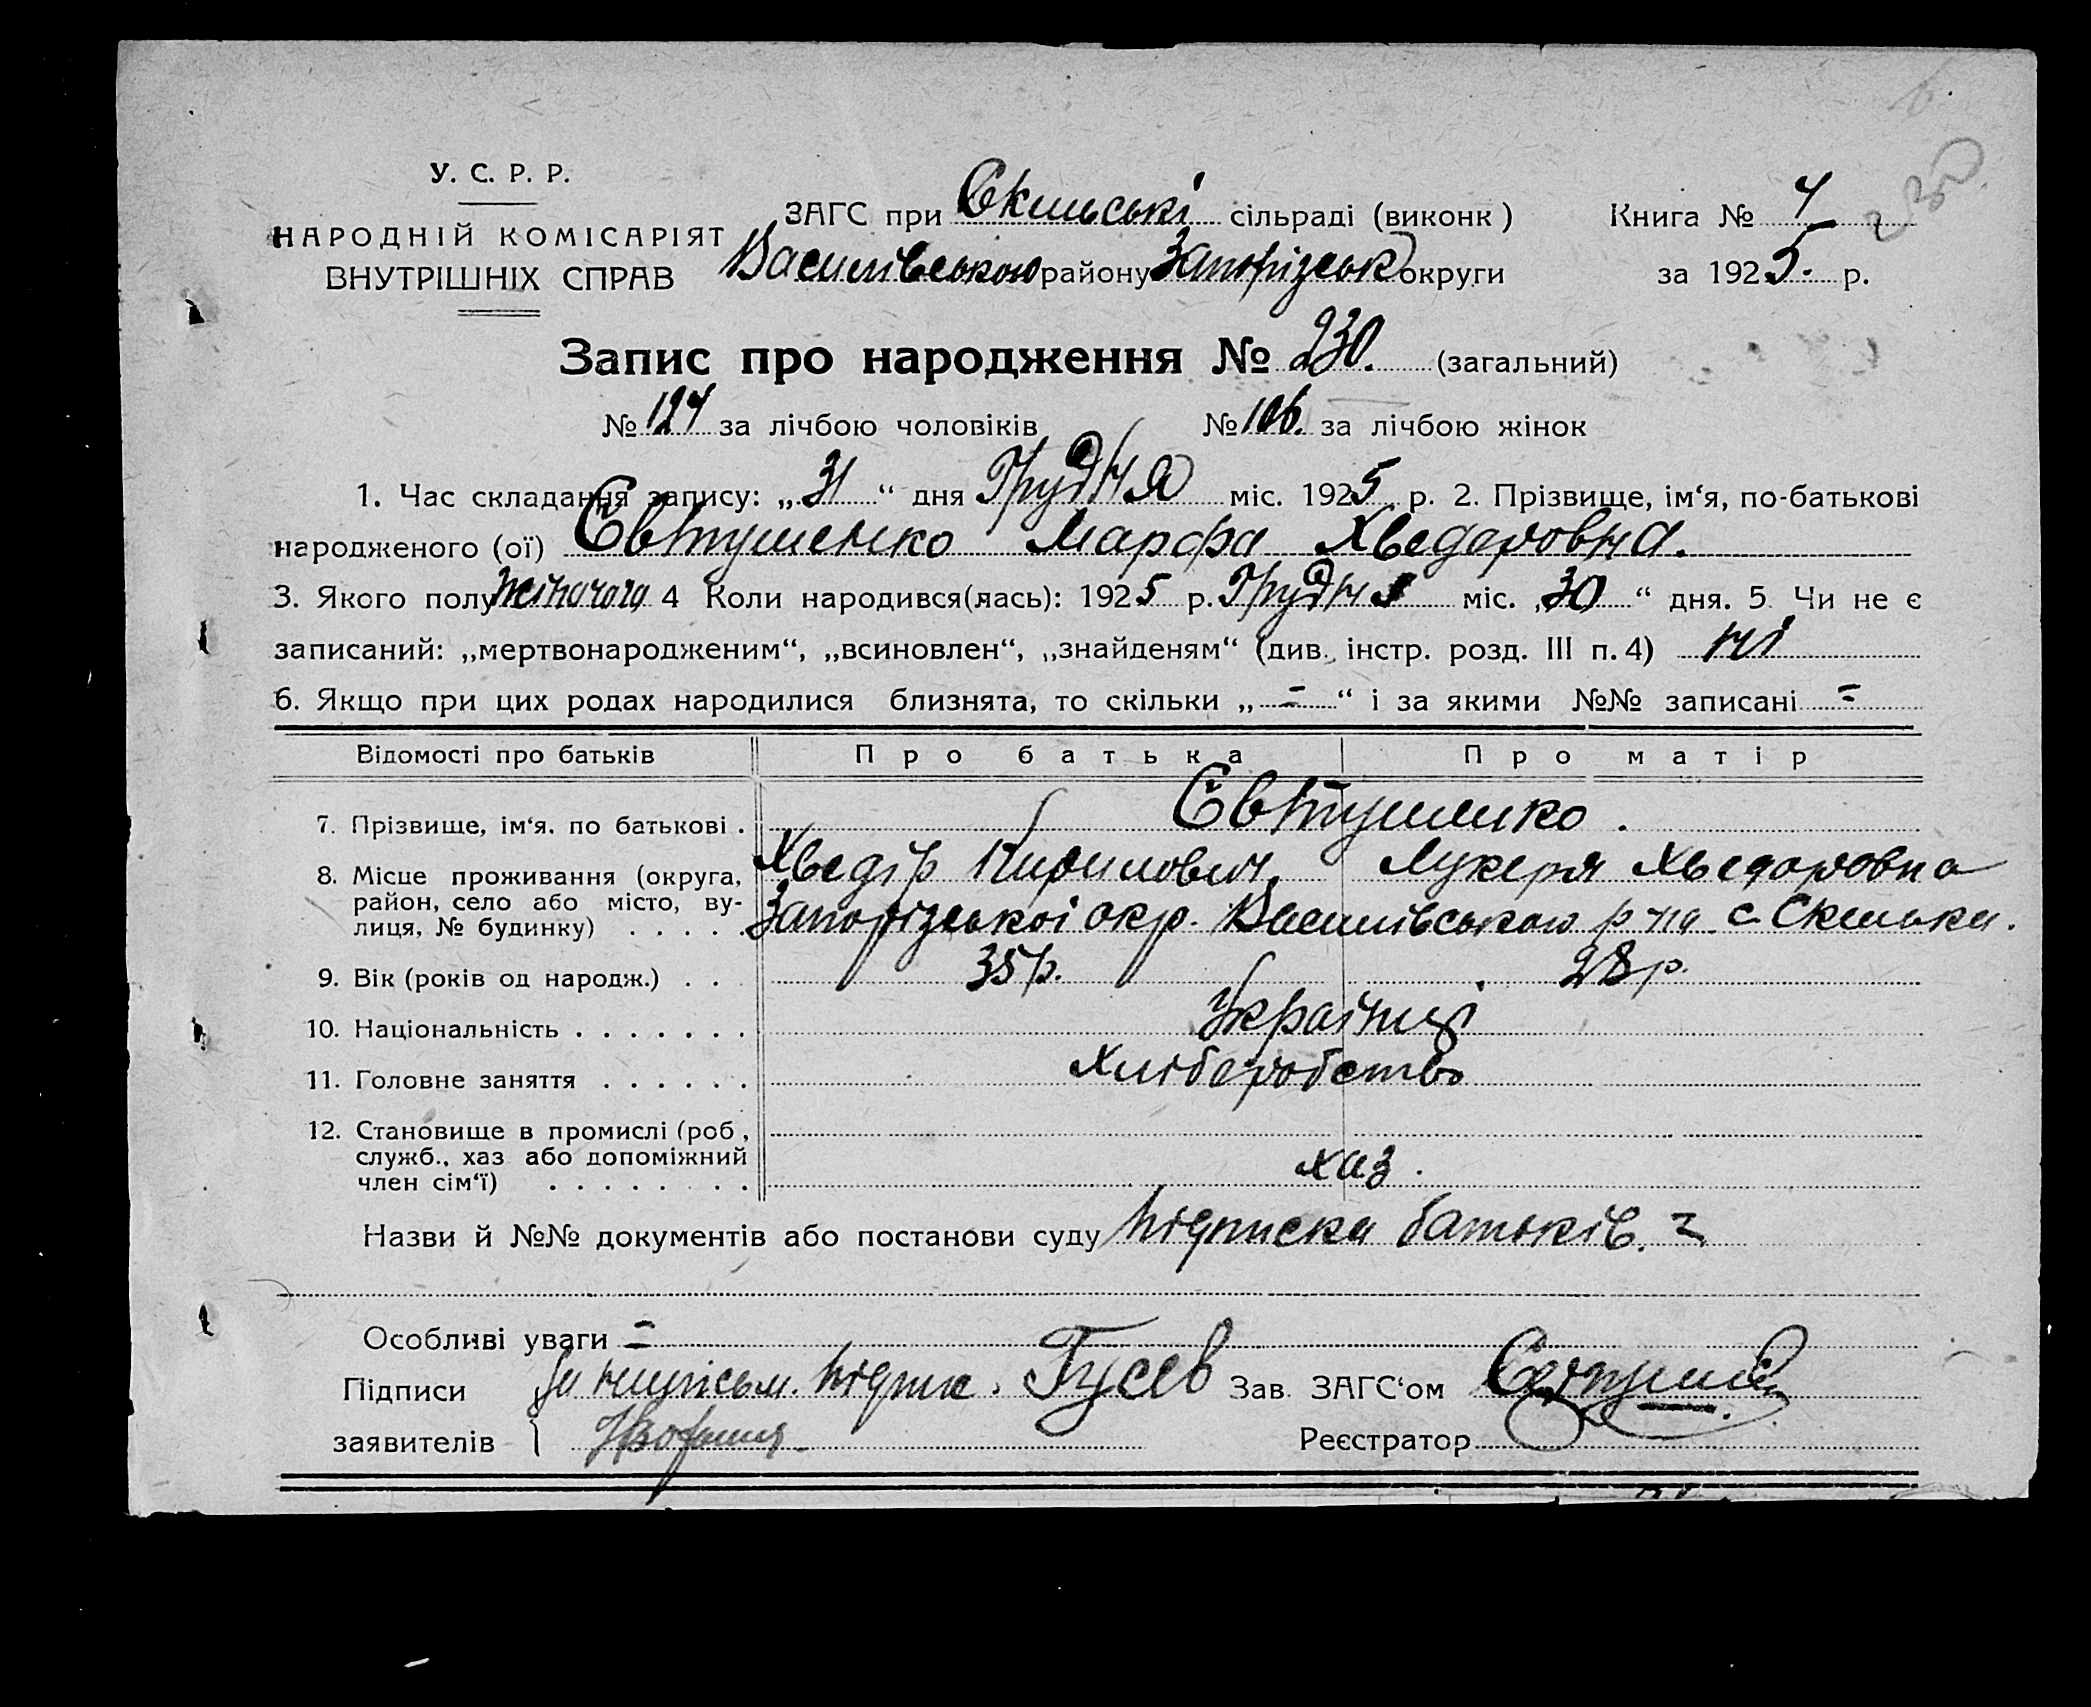 230
У. С. Р. Р.
НАРОДНІЙ КОМІСАРІЯТ
ВНУТРІШНІХ СПРАВ
ЗАГС при Скельські сільраді (виконк)
Книга № 4
Василівського району Запорізськ округи
за 1925. р.
Запис про народження № 230. (загальний)
№ 124 за лічбою чоловіків № 106. за лічбою жінок
1. Час складання запису: „31“ дня Грудня міс. 1925 р. 2. Прізвище, ім‘я, по-батькові
народженого (ої) Євтушенко Марфа Хведоровна.
3. Якого полу жіночого 4 Коли народився(лась): 1925 р. Грудня міс. „30“ дня. 5. Чи не є
записаний: „мертвонародженим“, „всиновлен“, „знайденям“ (див. інстр. розд. III п. 4) ні
6. Якщо при цих родах народилися близнята, то скільки „-“ і за якими №№ записані -
Відомості про батьків Про батька Про матір
7. Прізвище, ім‘я. по батькові . Євтушенко.
Хведір Кирилович Лукеря Хведоровна
8. Місце проживання (округа,
район, село або місто, ву-
лиця, № будинку) . . . . . Запорізської окр. Василівського р-на с. Скельки.
9. Вік (років од народж.) . . 35 р. 28 р.
10. Національність . . . . . . . Українці
11. Головне заняття . . . . . . Хліборобство
12. Становище в промислі (роб.,
служб., хаз або допоміжний
член сім‘ї) . . . . . . . . хаз.
Назви й №№ документів або постанови суду підписка батьків.
Особливі уваги -
Підписи за неписьм. підпис. Гусев Зав. ЗАГС‘ом
заявителів Реєстратор